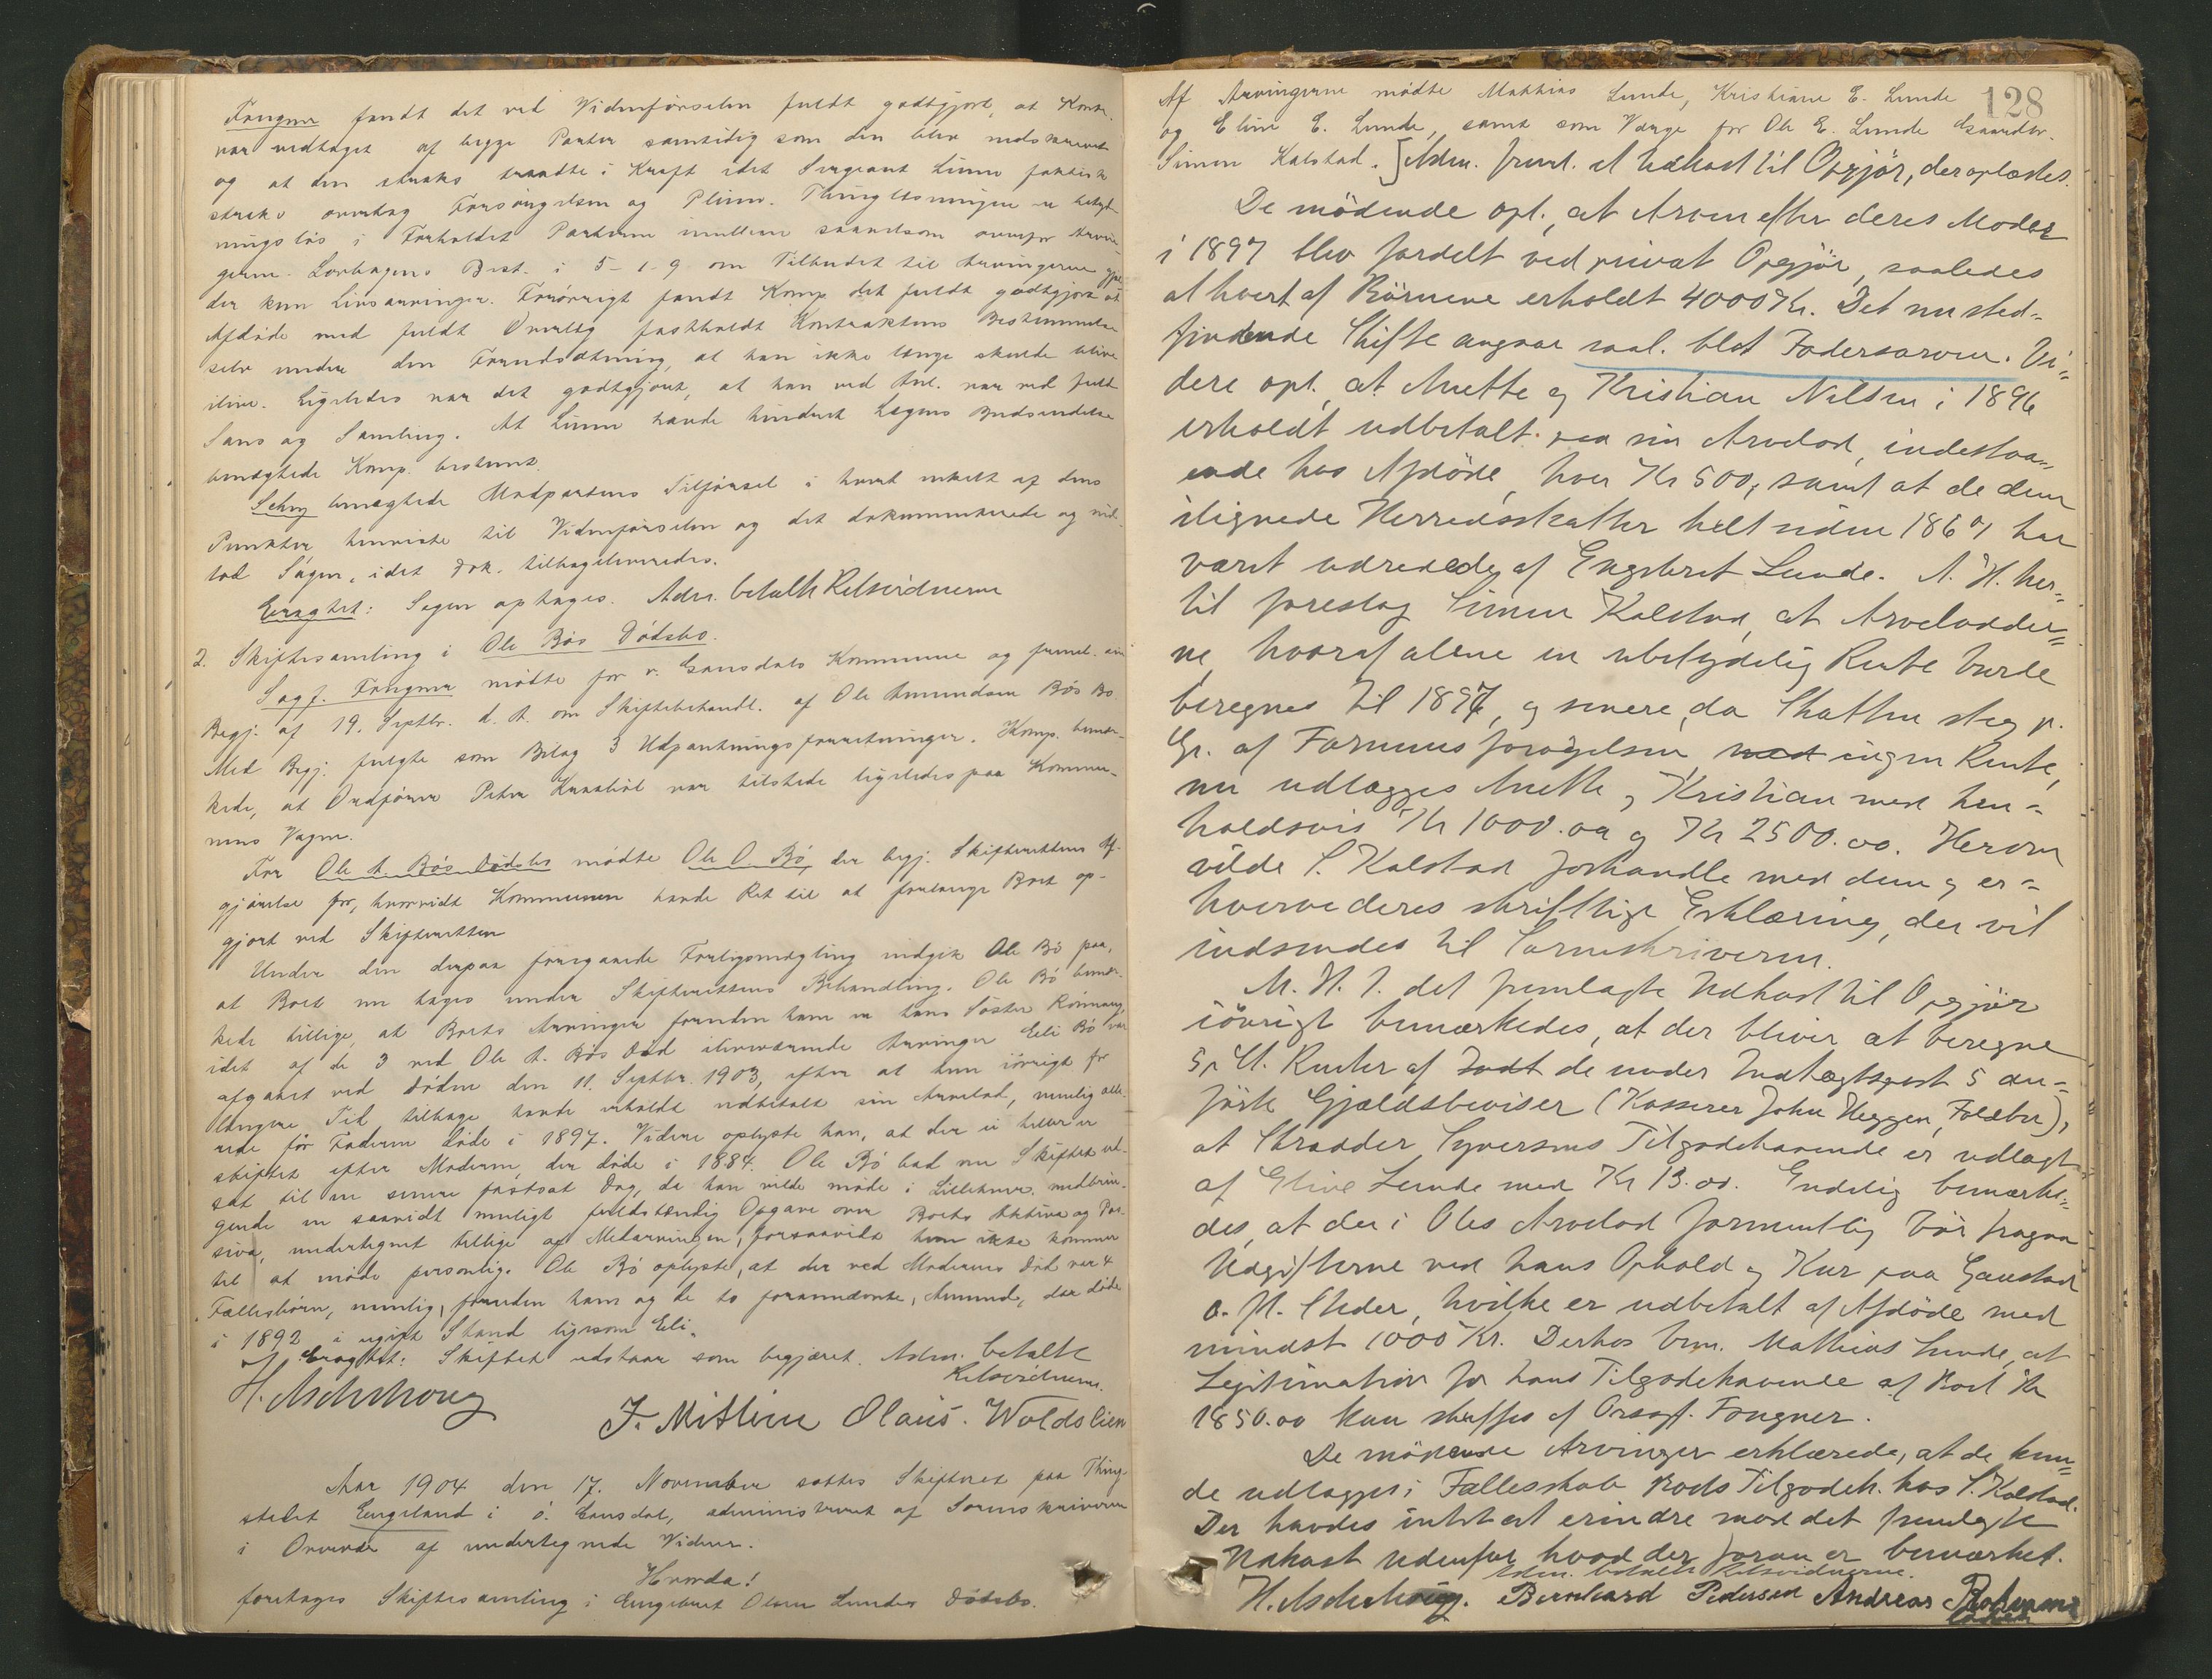 Fougner fandt det ved Vidneførselen fuldt godtgjort, at Kontr.
var vedtaget af begge Parter samtidig som den blev nedskrevet
og at den straks traadte i Kraft idet Sergeant Linne faktisk
straks overtog Forsørgelsen og Pleien. Thinglæsningen er betyd-
ningsløs i Forholdet Parterne imellem saavelsom overfor Arvin-
gerne. Lovbogens Best. i 5-1-9 om Tilbudet til Arvingerne gjæl-
der kun Livsarvinger. Forøvrigt fandt Komp. det fuldt godtgjort at
Afdøde med fuldt Overlæg fastholdt Kontraktens Bestemmelse
selv under den Forudsætning, at han ikke længe skulde blive
ilive. Ligeledes var det godtgjort, at han ved Anl. var ved fuld
Sans og Samling. At Linne havde hindret Lægens Budsendelse
benægtede Komp. bestemt.
Schey benægtede Modpartens Tilførsel i hvert enkelt af dens
Punkter, henviste til Vidneførselen og det dokumenterede og ind-
lod Sagen, idet Dok. tilbageleveredes.
Eragtet: Sagen optages. Adm. betalte Retsvidnerne
2. Skiftesamling i Ole Bøs Dødsbo.
Sagf. Fougner mødte for v. Gausdals Kommune og freml. sin
Begj. af 19. Septbr. d. A. om Skiftebehandl. af Ole Amundsen Bøs Bo.
Med Begj. fulgte som Bilag 3 Udpantningsforretninger. Komp. bemær-
kede, at Ordfører Peter var tilstede ligeledes paa Kommu-
nens Vegne.
For Ole A. Bøs Dødsbo mødte Ole O. Bø, der begj. Skifterettens Af-
gjørelse for, hvorvidt Kommunen havde Ret til at forlange Boet op-
gjort ved Skifteretten
Under den derpaa foregaaede Forligsmægling indgik Ole Bø paa,
at Boet nu tages under Skifterettens Behandling. Ole Bø bemær-
kede tillige, at Boets Arvinger foruden ham er hans Søster Rønnaug,
idet af de 3 ved Ole A. Bøs Død efterværende Arvinger Eli Bø var
afgaaet ved Døden den 11. Septbr. 1903, efter at hun iøvrigt for
længere Tid tilbage havde erholdt udbetalt sin Arvelod, nemlig alle-
rede før Faderen døde i 1897. Videre oplyste han, at der ei heller er
skiftet efter Moderen, der døde i 1884. Ole Bø bad nu Skiftet ud-
sat til en senere fastsat Dag, da han vilde møde i Lillehmr. medbrin-
gende en saavidt muligt fuldstændig Opgave over Boets Aktiva og Pas-
siva, undertegnet tillige af Medarvingen, forsaavidt hun ikke kommer
til at møde personlig. Ole Bø oplyste, at der ved Moderens Død var 4
Fællesbørn, nemlig, foruden ham og de to forannævnte, Amund, der døde
i 1892 i ugift Stand ligesom Eli.
Eragtet: Skiftet udstaar som begjæret. Adm. betalte
Retsvidnerne.
H. Aschehoug
J. Mitlien Olaus. Woldslien
Aar 1904 den 17. November sattes Skifteret paa Thing-
stedet Engeland i ø. Gausdal, administreret af Sorenskriveren
i Overvær af undertegnede Vidner.
Hvorda!
foretages Skiftesamling i Engebret Olsen Lundes Dødsbo.
128
Af Arvingerne mødte Mathias Lunde, Kristiane E. Lunde
og Eline E. Lunde, samt som Værge for Ole E. Lunde Gaardbr.
Simen Kalstad. Adm. freml. et Udkast til Opgjør, der oplæstes.
De mødende opl., at Arven efter deres Moder
i 1897 blev fordelt ved privat Opgjør, saaledes
at hvert af Børnene erholdt 4000 Kr. Det nu sted-
findende Skifte angaar saal. blot Fadersarven. Vi-
dere opl., at Anette og Kristian Nilsen i 1896
erholdt udbetalt paa sin Arvelod, indestaa-
ende hos Afdøde, hver Kr 500, samt at de dem
ilignede Herredsskatter helt siden 1867 har
været udredede af Engebret Lunde. M. H. her-
til foreslog Simen Kalstad, at Arvelodder-
ne, hvoraf alene en ubetydelig Rente burde
beregnes til 1897, og senere, da Skatten steg p.
Gr. af Formuesforøgelsen, ingen Rente,
nu udlægges Anette og Kristian med hen-
holdsvis Kr 1000.00 og Kr 2500.00. Herom
vilde S. Kalstad forhandle med dem og er-
hverve deres skriftlige Erklæring, der vil
indsendes til Sorenskriveren.
M. H. t. det fremlagte Udkast til Opgjør
iøvrigt bemærkedes, at der bliver at beregne
5 p Ct. Renter af de under Indtægtspost 5 an-
førte Gjældsbeviser (Kasserer John Heggen, Foldebu),
at Skrædder Syversens Tilgodehavende er udlagt
af Eline Lunde med Kr 13.00. Endelig bemærke-
des, at der i Oles Arvelod formentlig bør fragaa
Udgifterne ved hans Ophold og Kur paa Gaustad
o. fl. Steder, hvilke er udbetalt af Afdøde med
mindst 1000 Kr. Derhos bem. Mathias Lunde, at
Legitimation for hans Tilgodehavende af Boet Kr
1850.00 kan skaffes af Orsagf. Fougner.
De mødende Arvinger erklærede, at de kun-
de udlægges i Fællesskab Boets Tilgodeh. hos S. Kalstad.
Der havdes intet at erindre mod det fremlagte
Udkast udenfor hvad der foran er bemærket.
Adm. betalte Retsvidnerne.
H. Aschehoug. Bernhard Pedersen Andreas